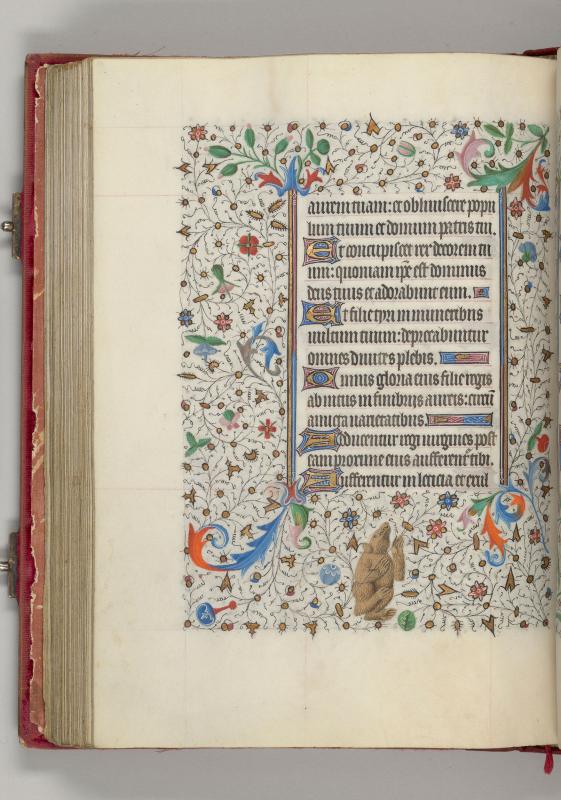 aurem tuam: et obliuiscere popu
lum tuum et domum patris tui.
Et concupiscet rex decorem tu
um: quoniam ip̄e est dominus
deus tuus et adorabunt eum.
Et filie tyri in muneribus
uultum tuum: deprecabuntur
omnes diuites plebis.
Omnis gloria eius filie regis
ab intus in fimbriis aureis: circū
amicta uarietatibus.
Adducentur regi uirgines post
eam proxime eius afferent̃ tibi
Afferentur in leticia et exul